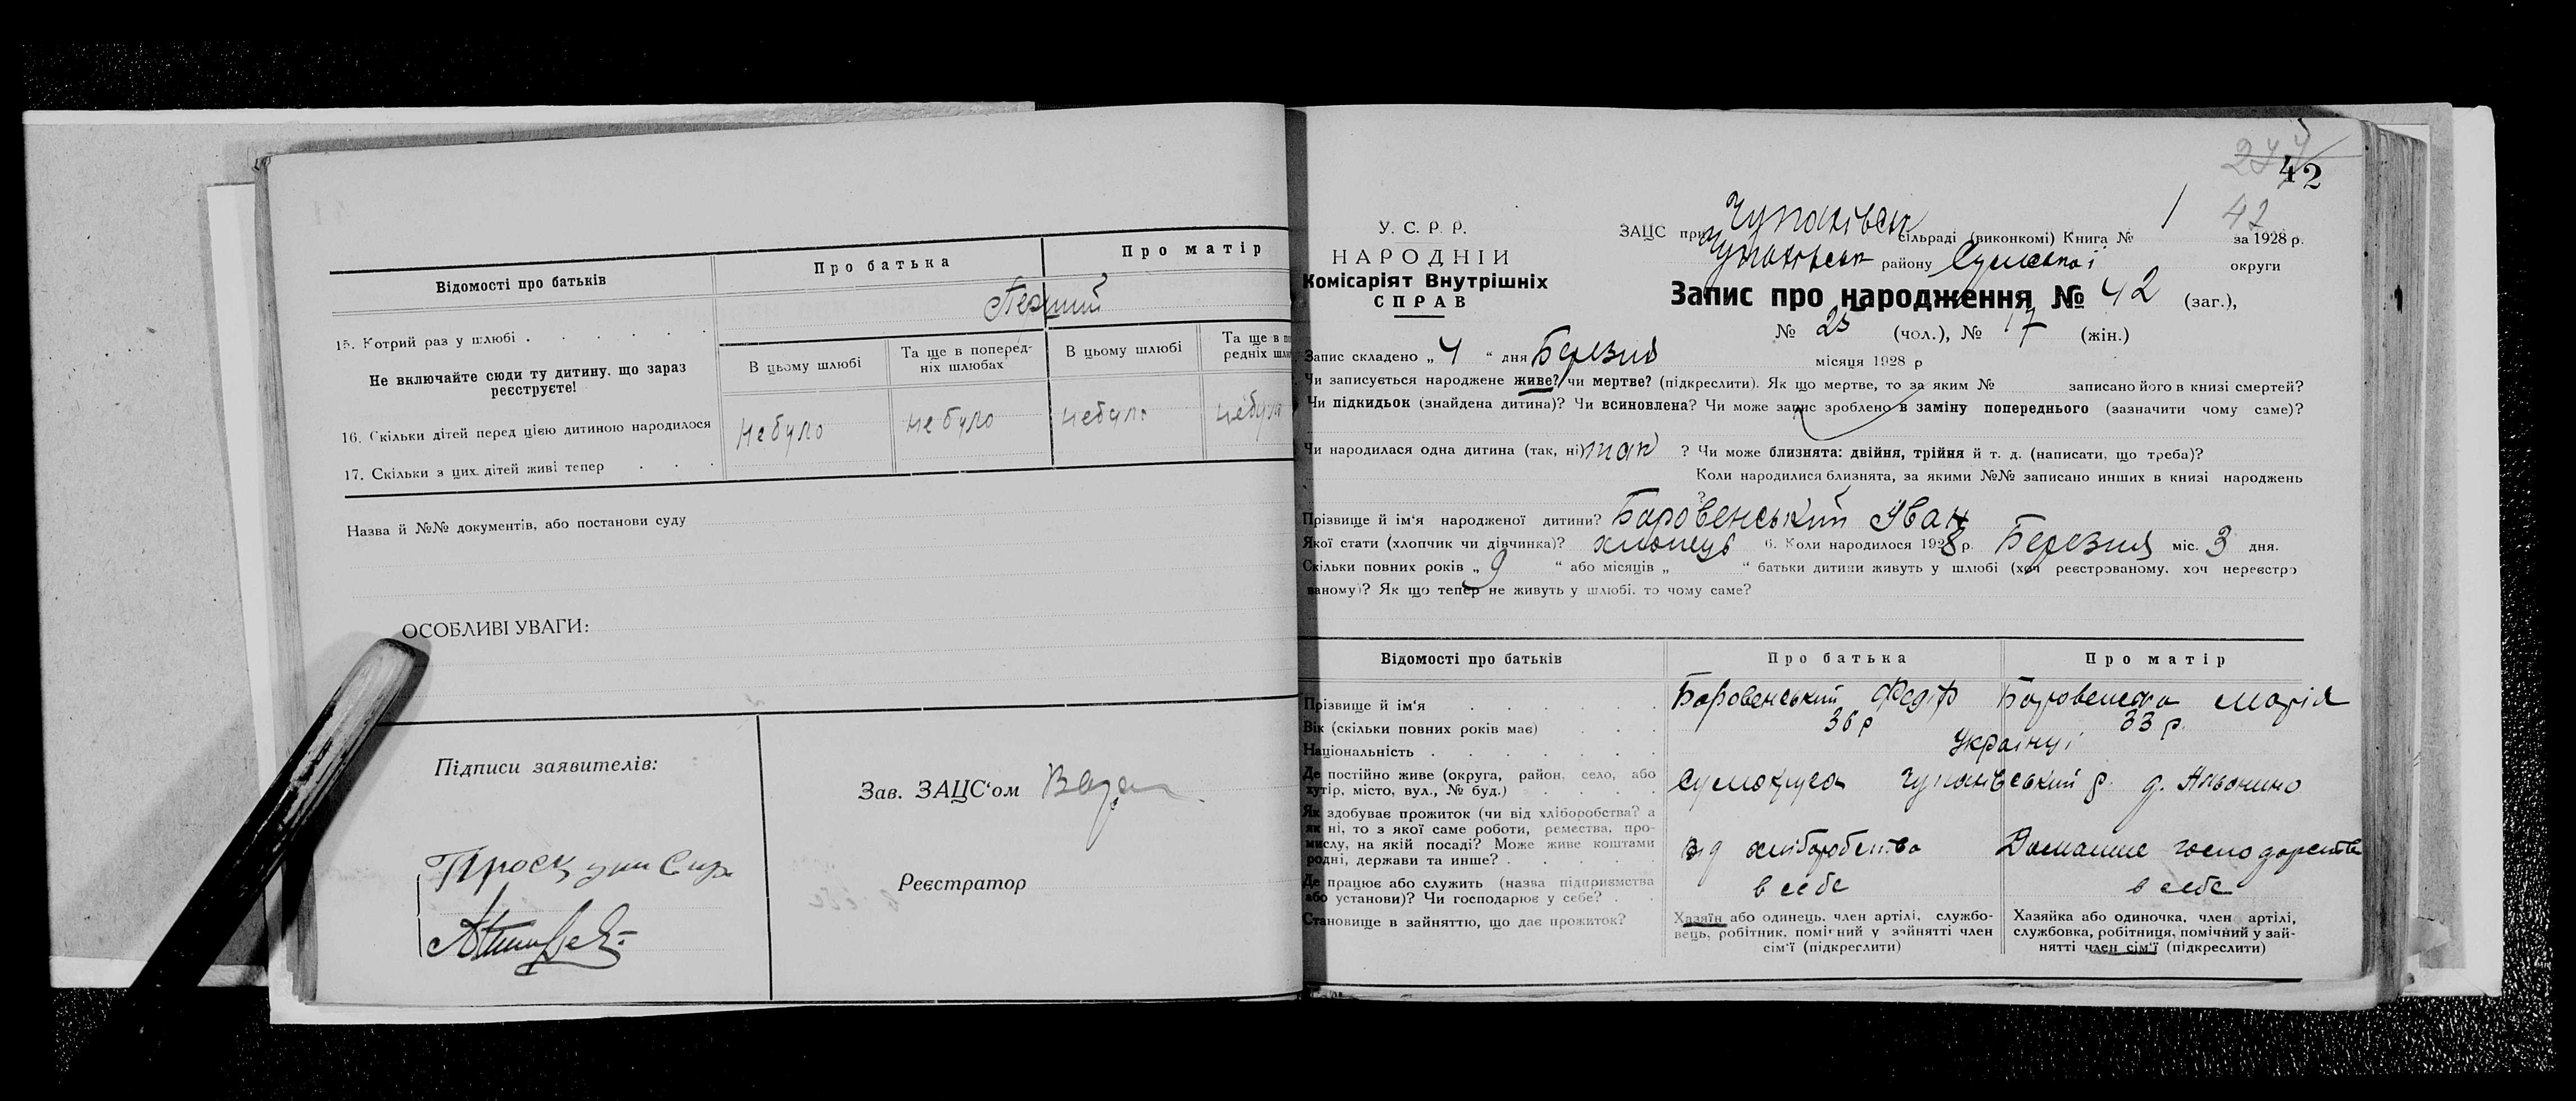 Відомості про батьків
Про батька
Про матір
15. Котрий раз у шлюбі . . . .
Перший
Не включайте сюди ту дитину, що зараз
реєструєте!
В цьому шлюбі
Та ще в поперед-
ніх шлюбах
В цьому шлюбі
Та ще в по
редніх шлю
16. Скільки дітей перед цією дитиною народилося
Небуло
небуло
небуло
небуло
17. Скільки з цих дітей живі тепер . . .
Назва й №№ документів, або постанови суду
ОСОБЛИВІ УВАГИ:
Підписи заявителів:
Зав. ЗАЦС'ом
Реєстратор
42
42
У. С. Р. Р.
НАРОДНІЙ
Комісаріят Внутрішніх
СПРАВ
ЗАЦС при Чупахівськ сільраді (виконкомі) Книга № 1 за 1928 р.
Чупахівськ району Сумської округи
Запис про народження № 42 (заг.),
№ 25 (чол.), № 17 (жін.)
Запис складено „ 4 “ дня Березня місяця 1928 р
Чи записується народжене живе? чи мертве? (підкреслити). Як що мертве, то за яким № записано його в книзі смертей?
Чи підкидьок (знайдена дитина)? Чи всиновлена? Чи може запис зроблено в заміну попереднього (зазначити чому саме)?
Чи народилася одна дитина (так, ні) так ? Чи може близнята: двійня, трійня й т. д. (написати, що треба)?
Коли народилися близнята, за якими №№ записано инших в книзі народжень
?
Прізвище й ім'я народженої дитини? Боровенський Іван
Якої стати (хлопчик чи дівчинка)? хлопець 6. Коли народилося 1928 р. Березня міс. 3 дня.
Скільки повних років „ 9 “ або місяців „ “ батьки дитини живуть у шлюбі (хоч реєстрованому, хоч нереєстро
ваному)? Як що тепер не живуть у шлюбі, то чому саме?
Відомості про батьків
Про батька
Про матір
Прізвище й ім'я . . . . . .
Боровенський Федір
Боровенська Марія
Вік (скільки повних років має) . . .
36 р
33 р.
Національність . . . . . . .
Українці
Де постійно живе (округа, район, село, або
хутір, місто, вул., № буд.) . . . .
Сумокруга Чупахівський р.
Як здобуває прожиток (чи від хліборобства? а
як ні, то з якої саме роботи, ремества, про-
мислу, на якій посаді? Може живе коштами
родні, держави та инше? . . . . .
від хліборобства
Домашнє господарство
Де працює або служить (назва підприємства
або установи)? Чи господарює у себе? . .
в себе
в себе
Становище в зайняттю, що дає прожиток?
Хазяїн або одинець, член артілі, службо-
вець, робітник, помічний у зайнятті член
сім'ї (підкреслити)
Хазяйка або одиночка, член артілі,
службовка, робітниця, помічний у зай-
нятті член сім'ї (підкреслити)